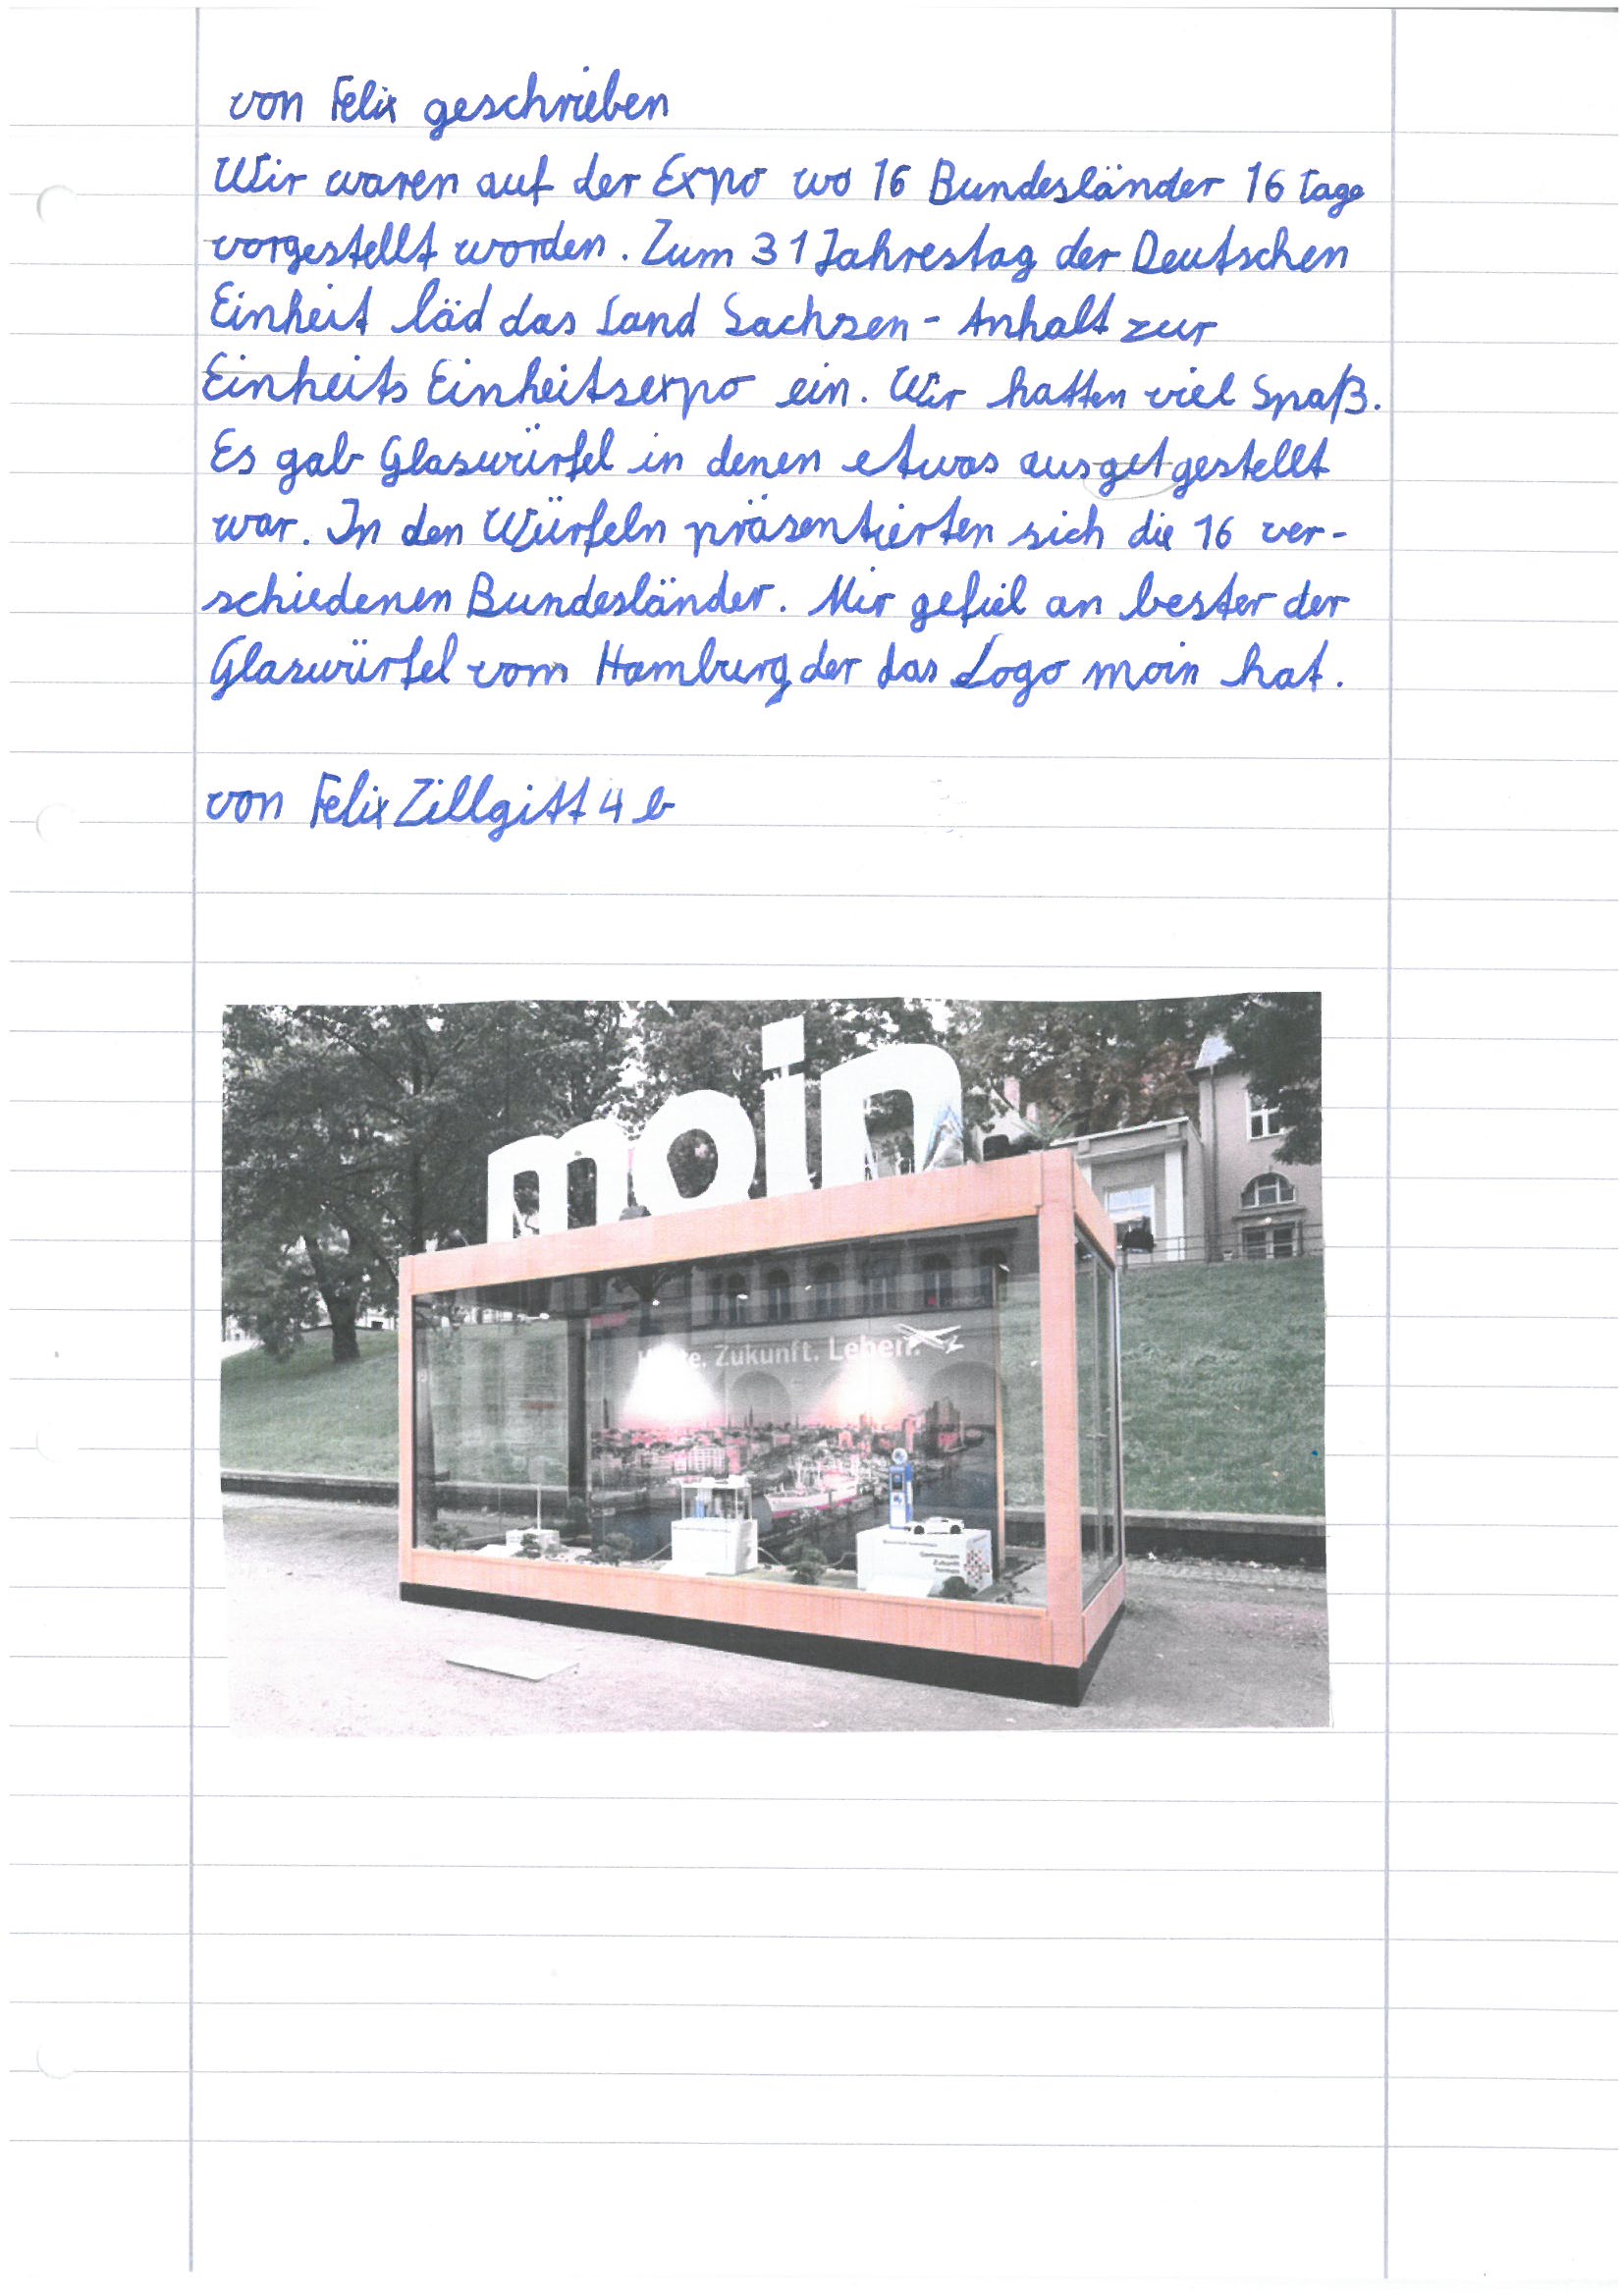 von Felix geschrieben
Wir waren auf der Expo wo 16 Bundesländer 16 tage
vorgestellt worden. Zum 31 Jahrestag der Deutschen
Einheit läd das Land Sachsen - Anhalt zur
Einheits Einheitsexpo ein. Wir hatten viel Spaß.
Es gab Glaswürfel in denen etwas ausgetgestellt
war. In den Würfeln präsentierten sich die 16 ver-
schiedenen Bundesländer. Mir gefiel an bester der
Glaswürfel vom Hamburg der das Logo moin hat.
von Felix Zillgitt 4 b
moin
Zukunft. Leben.
Gemeinsam
Zukunft